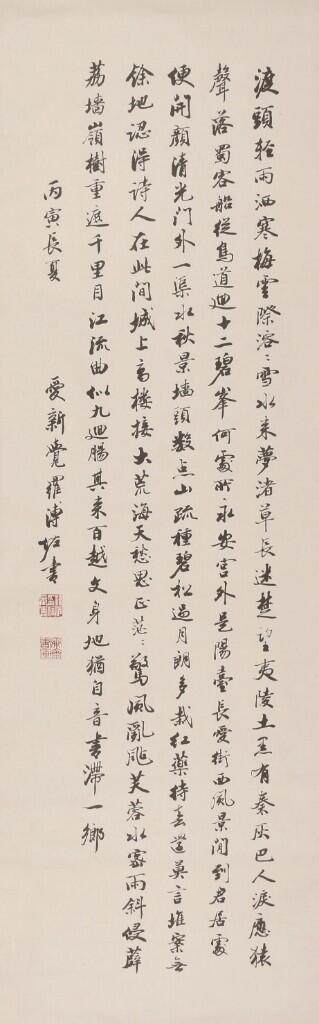 渡頭輕雨洒寒梅雲際溶〻雪水来夢渚草長迷楚望夷陵土黑有秦灰巴人淚應猿
聲落蜀客船從鳥道迴十二碧峯何處所永安宮外是陽臺長愛街西風景閒到君居處
便開顏清光門外一渠水秋景墻頭數点山疏種碧松過月朗多栽紅藥待春還莫言堆案無
餘地認得诗人在此間城上高楼接大荒海天愁思正茫〻驚風亂颭芙蓉水密雨斜侵薜
荔墻嶺樹重遮千里目江流曲似九迴腸共来百越文身地猶自音書滯一鄉
丙寅長夏
愛新覺羅溥佐書